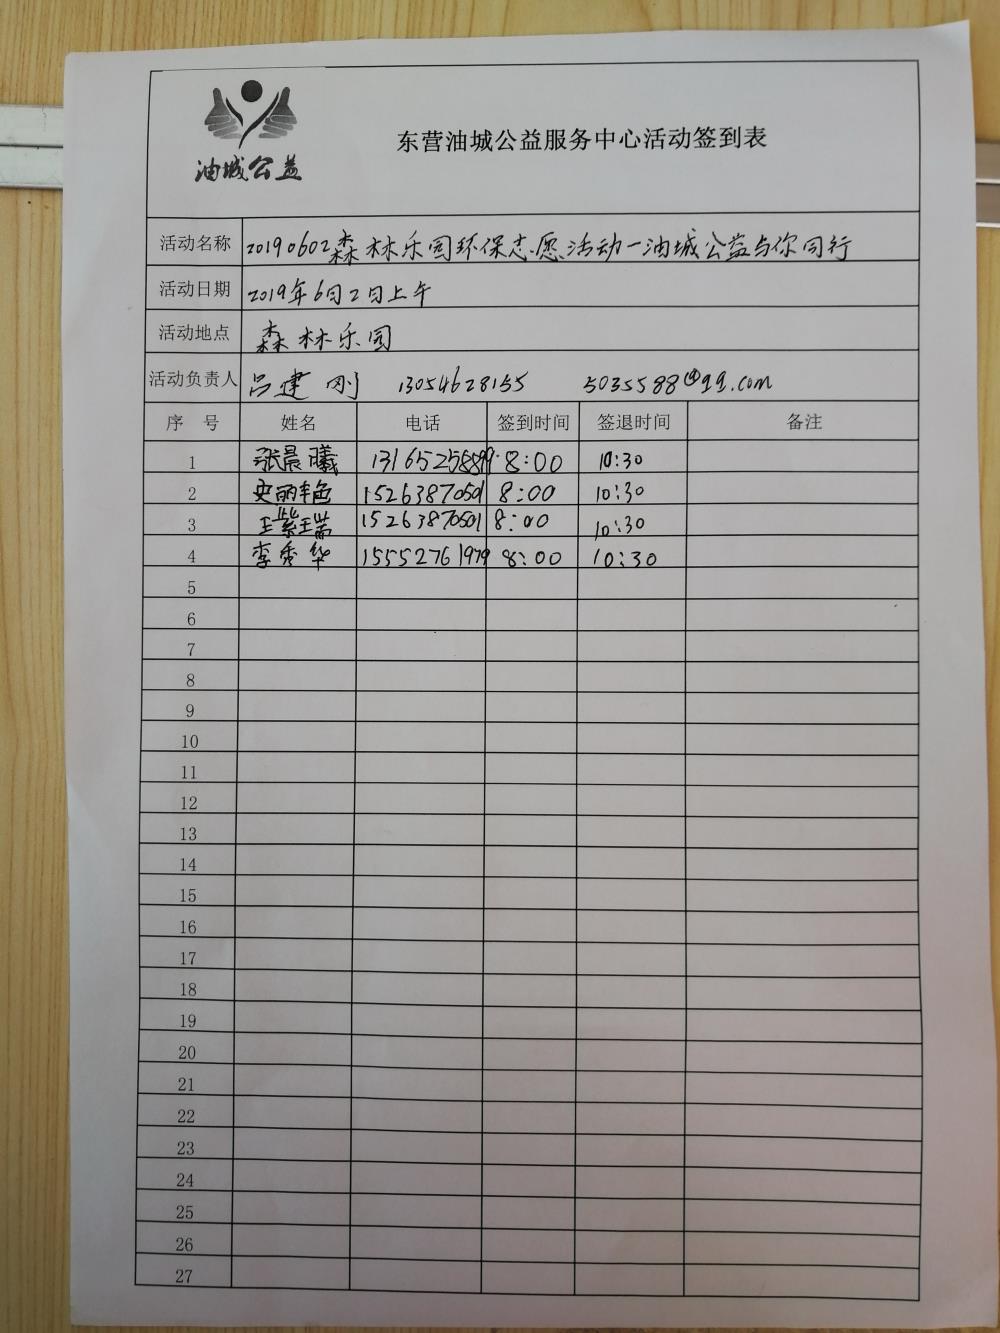 油城公益
东营油城公益服务中心活动签到表
活动名称 20190602森林乐园环保志愿活动一油城公益与你同行
活动日期 2019年6月2日上午
活动地点 森林乐园
活动负责人 吕建刚 13054628155 5035588@qq.com
序号 姓名 电话 签到时间 签退时间 备注
1 张晨曦 8:00 10:30
2 史丽艳 15263870501 8:00 10:30
3 15263870501 8:00 10:30
4 李秀华 15552761979 8:00 10:30
5
6
7
8
9
10
11
12
13
14
15
16
17
18
19
20
21
22
23
24
25
26
27